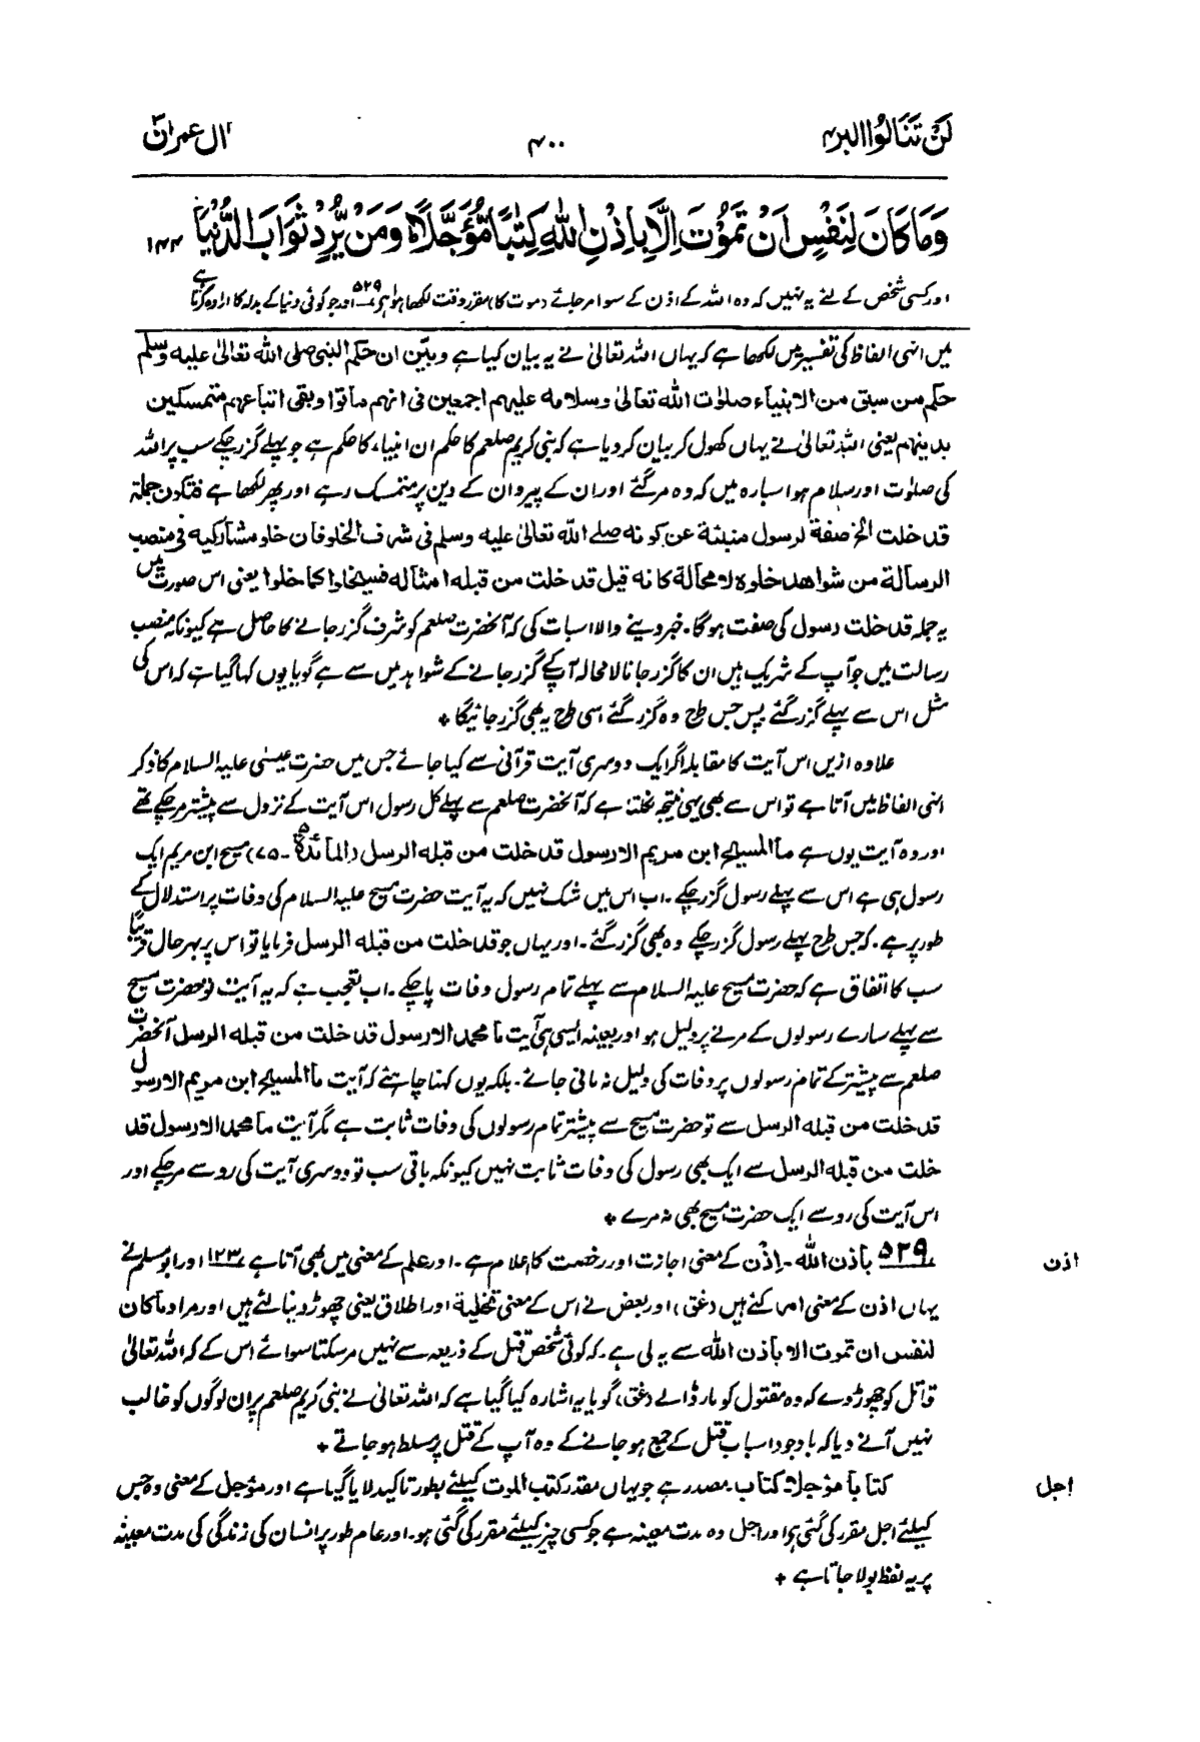 لَنْ تَنَالُوا البر ۴
۴۰۰
اٰل عمران ۳
وَمَا كَانَ لِنَفْسٍ اَنْ تَمُوْتَ اِلَّا بِاِذْنِ اللّٰهِ كِتٰبًا مُّؤَجَّلًا ؕ وَمَنْ يُّرِدْ ثَوَابَ الدُّنْيَا ۱۴۴
اور کسی شخص کے لئے یہ نہیں کہ وہ اللہ کے اذن کے سوا مر جائے (موت کا) مقرر وقت لکھا ہوا ہے ۵۲۹ اور جو کوئی دنیا کے بدلہ کا ارادہ کرتا ہے
میں انہی الفاظ کی تفسیر میں لکھا ہے کہ یہاں اللہ تعالیٰ نے یہ بیان کیا ہے وبیّن ان حکم النبی صلی اللہ تعالیٰ علیہ وسلم
حکم من سبق من الانبیاء صلوٰت اللہ تعالیٰ وسلامہ علیہم اجمعین فی انہم ماتوا وبقی اتباعہم متمسکین
بدینہم یعنی اللہ تعالیٰ نے یہاں کھول کر بیان کر دیا ہے کہ نبی کریم صلعم کا حکم ان انبیاء کا حکم ہے جو پہلے گزر چکے سب پر اللہ
کی صلوٰت اور سلام ہو اسبارہ میں کہ وہ مر گئے اور ان کے پیرو ان کے دین پر متمسک رہے اور پھر لکھا ہے فتکون جملۃ
قد خلت الخ صفۃ لرسول منبئۃ عن کونہ صلے اللہ تعالیٰ علیہ وسلم فی شرف الخلو فان خلو مشارکیہ فی منصب
الرسالۃ من شواھد خلوہ لا محالۃ کانہ قیل قد خلت من قبلہ امثالہ فسیخلوا کما خلوا یعنی اس صورت میں
یہ جملہ قد خلت رسول کی صفت ہوگا۔ خبر دینے والا اسبات کی کہ آنحضرت صلعم کو شرف گزر جانے کا حاصل ہے کیونکہ منصب
رسالت میں جو آپ کے شریک ہیں ان کا گزر جانا لامحالہ آپ کے گزر جانے کے شواہد میں سے ہے گویا یوں کہا گیا ہے کہ اس کی
مثل اس سے پہلے گزر گئے پس جس طرح وہ گزر گئے اسی طرح یہ بھی گزر جائیگا ٭
علاوہ ازیں اس آیت کا مقابلہ اگر ایک دوسری آیت قرآنی سے کیا جائے جس میں حضرت عیسیٰ علیہ السلام کا ذکر
انہی الفاظ میں آتا ہے تو اس سے بھی یہی نتیجہ نکلتا ہے کہ آنحضرت صلعم سے پہلے کل رسول اس آیت کے نزول سے پیشتر مر چکے تھے
اور وہ آیت یوں ہے ما المسیح ابن مریم الا رسول قد خلت من قبلہ الرسل (المائدۃ ۵ ـ ۷۵) مسیح ابن مریم ایک
رسول ہی ہے اس سے پہلے رسول گزر چکے۔ اب اس میں شک نہیں کہ یہ آیت حضرت مسیح علیہ السلام کی وفات پر استدلال کے
طور پر ہے۔ کہ جس طرح پہلے رسول گزر چکے وہ بھی گزر گئے۔ اور یہاں جو قد خلت من قبلہ الرسل فرمایا تو اس پر بہر حال قریباً
سب کا اتفاق ہے کہ حضرت مسیح علیہ السلام سے پہلے تمام رسول وفات پا چکے۔ اب تعجب ہے کہ یہ آیت تو حضرت مسیح
سے پہلے سارے رسولوں کے مرنے پر دلیل ہو اور بعینہ ایسی ہی آیت ما محمد الا رسول قد خلت من قبلہ الرسل آنحضرت
صلعم سے پیشتر کے تمام رسولوں پر وفات کی دلیل نہ مانی جائے۔ بلکہ یوں کہنا چاہئے کہ آیت ما المسیح ابن مریم الا رسول
قد خلت من قبلہ الرسل سے تو حضرت مسیح سے پیشتر تمام رسولوں کی وفات ثابت ہے مگر آیت ما محمد الا رسول قد
خلت من قبلہ الرسل سے ایک بھی رسول کی وفات ثابت نہیں کیونکہ باقی سب تو دوسری آیت کی رو سے مر چکے اور
اس آیت کی رو سے ایک حضرت مسیح بھی نہ مرے ٭
اذن
۵۲۹ باذن اللہ۔ اِذْن کے معنی اجازت اور رخصت کا اعلام ہے۔ اور علم کے معنی میں بھی آتا ہے ۱۲۳ اور ابو مسلم نے
یہاں اذن کے معنی امر کئے ہیں (غق) اور بعض نے اس کے معنی تخلیۃ اور اطلاق یعنی چھوڑ دینا لئے ہیں اور مراد ما کان
لنفس ان تموت الا باذن اللہ سے یہ لی ہے۔ کہ کوئی شخص قتل کے ذریعہ سے نہیں مر سکتا سوائے اس کے کہ اللہ تعالیٰ
قاتل کو چھوڑ دے کہ وہ مقتول کو مار ڈالے (غق)، گویا یہ اشارہ کیا گیا ہے کہ اللہ تعالیٰ نے نبی کریم صلعم پر ان لوگوں کو غالب
نہیں آنے دیا کہ باوجود اسباب قتل کے جمع ہو جانے کے وہ آپ کے قتل پر مسلط ہو جاتے ٭
اجل
کتاباً مؤجلاً۔ کتاب۔ مصدر ہے جو یہاں مقدر کتب الموت کیلئے بطور تاکید لایا گیا ہے اور مؤجل کے معنی وہ جس
کیلئے اجل مقرر کی گئی ہو اور اجل وہ مدت معینہ ہے جو کسی چیز کیلئے مقرر کی گئی ہو۔ اور عام طور پر انسان کی زندگی کی مدت معینہ
پر یہ لفظ بولا جاتا ہے ٭